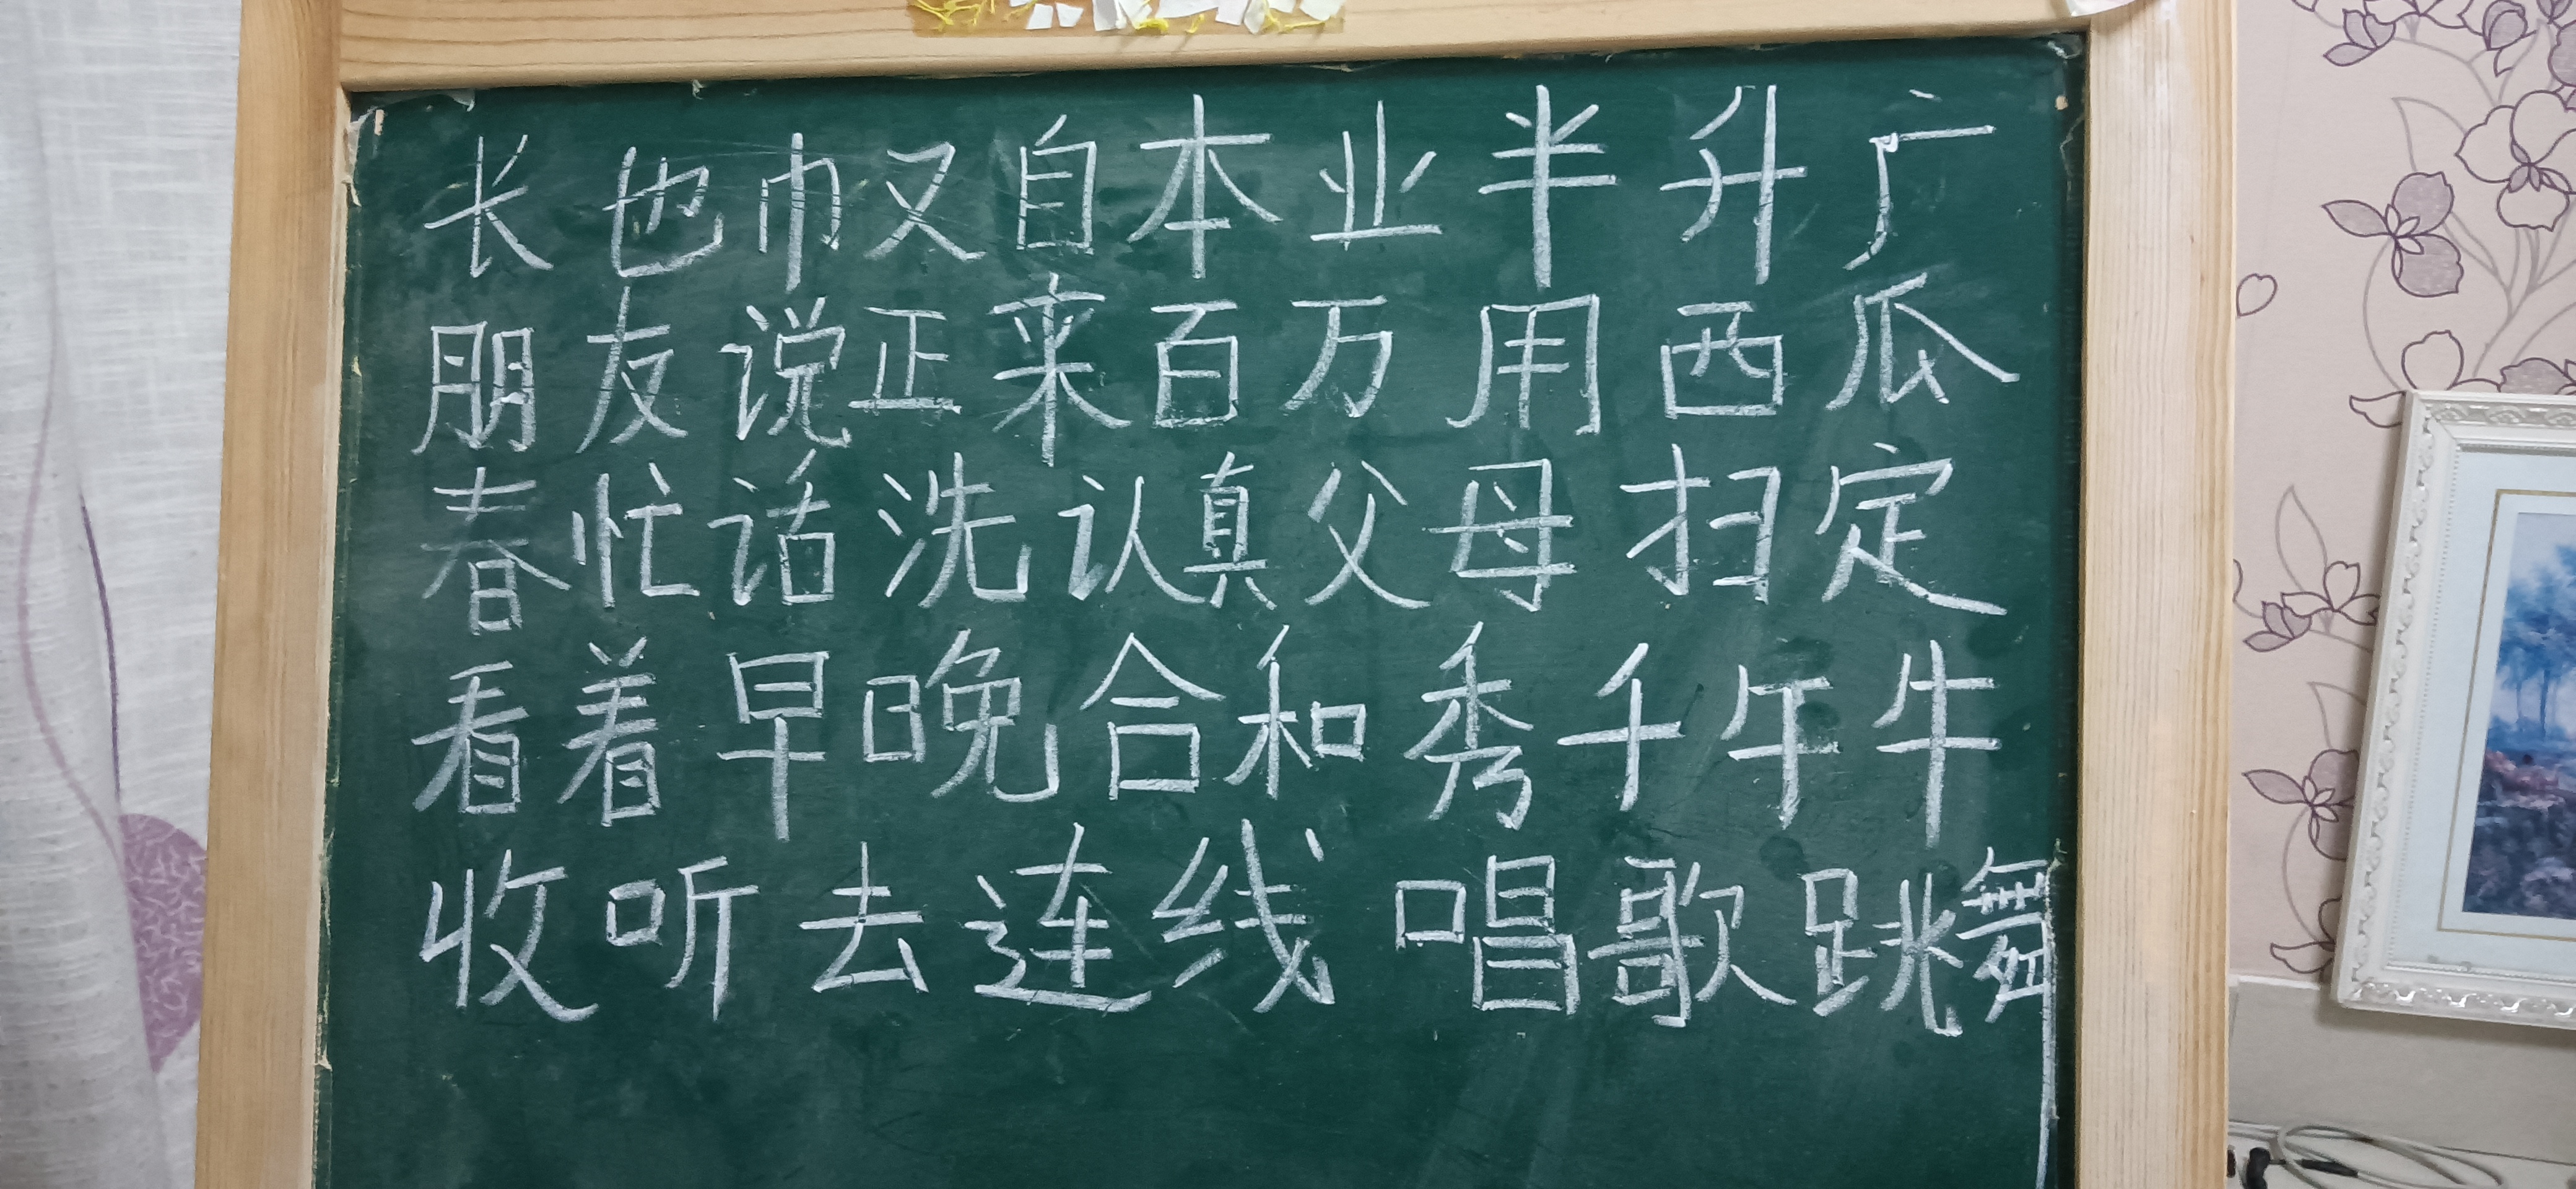 长也巾又自本业半升广
朋友说正来百万用西瓜
春忙话洗认真父母扫定
看着早晚合和秀千午牛
收听去连线唱歌跳舞